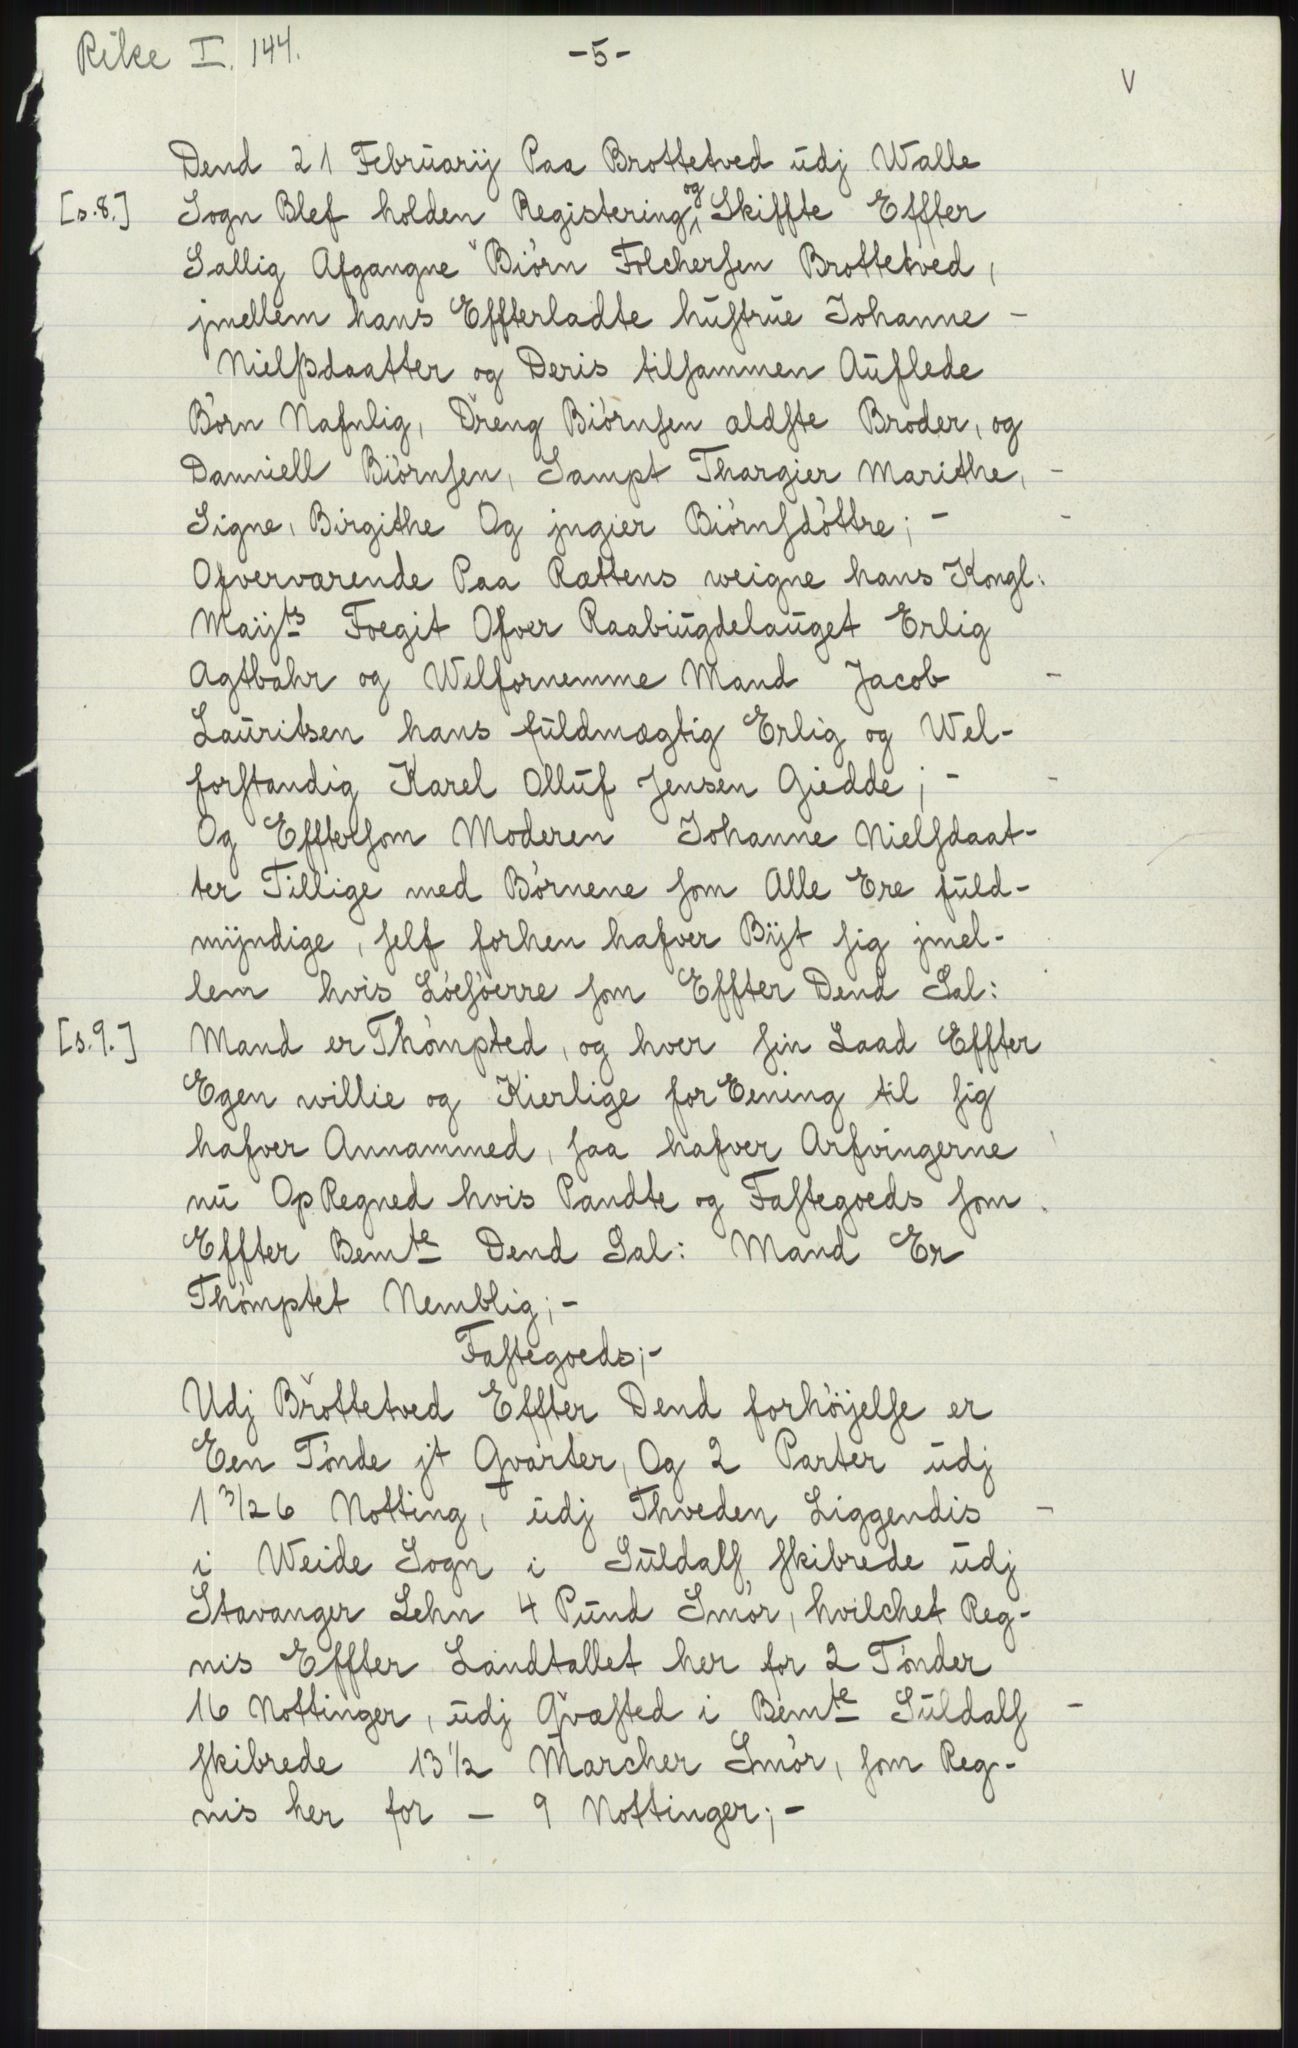 Rike I. 144.
-5-
V
Dend 21 Februarij Paa Brottetved udj Walle
[s.8.] Sogn Blef holden Registering og Skiffte Effter
Sallig Afgangne Biörn Folchersen Brottetved,
jmellem hans Effterladte hustrue Johanne -
Nielssdaatter og Deris tilsammen Auflede
Börn Nafnlig, Dreng Biörnsen aldste Broder, og
Danniell Biörnsen, Sampt Thargier Marithe, -
Signe, Birgithe Og jngier Biörnsdöttre; - -
Ofverværende Paa Rættens weigne hans Kongl:
Maijts Foegit Ofver Raabiugdelauget Erlig
Agtbahr og Welfornemme Mand Jacob -
Lauritsen hans fuldmægtig Erlig og Wel-
forstandig Karel Olluf Jensen Giedde; - -
Og Efftersom Moderen Johanne Nielsdaat-
ter Tillige med Börnene som Alle Ere fuld-
mijndige, self forhen hafver Bijt sig jmel-
lem hvis Löesöerre som Effter Dend Sal:
[s.9.] Mand er Thömpted, og hver sin Laad Effter
Egen willie og Kierlige for Eening til sig
hafver Annammed, saa hafver Arfvingerne
nu OpRegned hvis Pandte og Fastegoeds som
Effter Bemte Dend Sal: Mand Er
Thömptet Nemblig; -
Fastegoeds; -
Udj Brottetved Effter Dend forhöijelse er
Een Tönde jt Qvarter, Og 2 Parter udj
1 3/26 Notting, udj Thveden Liggendis -
i Weide Sogn i Suldals skibrede udj
Stavanger Lehn 4 Pund Smör, hvilchet Reg-
nis Effter Landtallet her for 2 Tönder
16 Nottinger, udj Qvæsted i Bemte Suldals -
skibrede 13 1/2 Marcher Smör, som Reg-
nis her for - 9 Nottinger; -